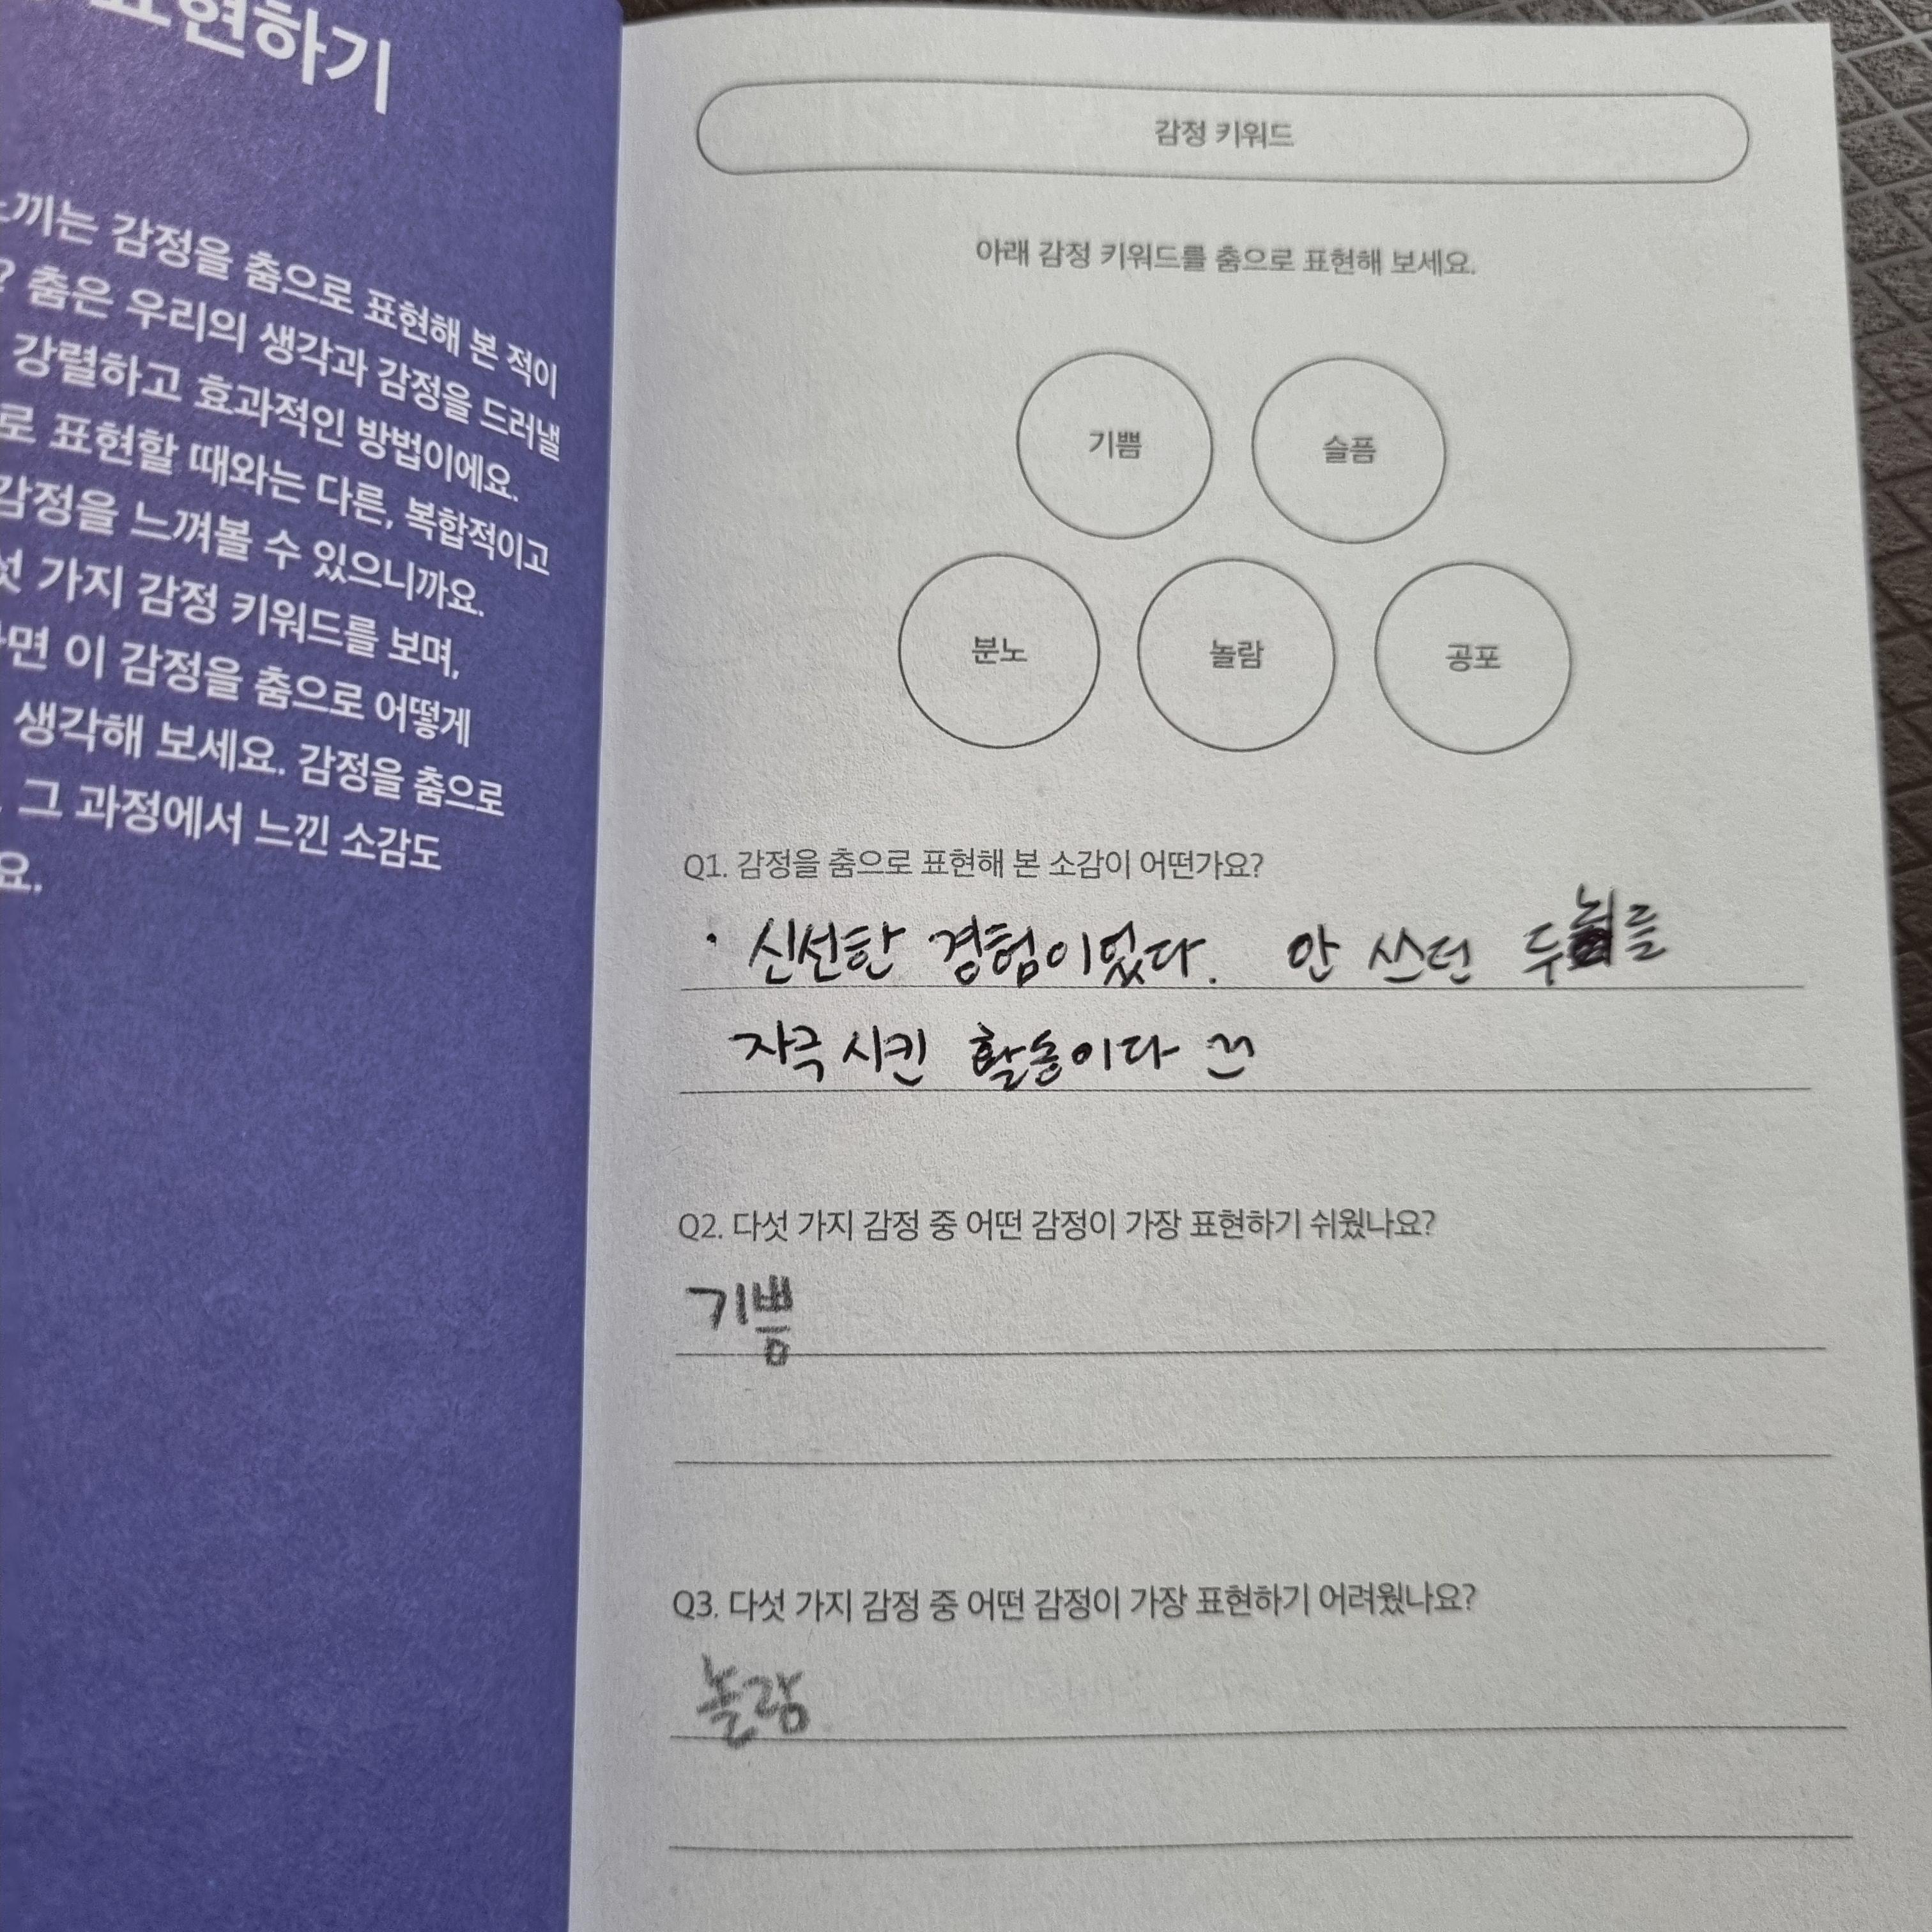 표현하기
끼는 감정을 춤으로 표현해 본 적이
? 춤은 우리의 생각과 감정을 드러낼
강렬하고 효과적인 방법이에요.
로 표현할 때와는 다른, 복합적이고
감정을 느껴볼 수 있으니까요.
섯 가지 감정 키워드를 보며,
면 이 감정을 춤으로 어떻게
생각해 보세요. 감정을 춤으로
그 과정에서 느낀 소감도
요.
감정 키워드
아래 감정 키워드를 춤으로 표현해 보세요.
기쁨 슬픔
분노 놀람 공포
Q1. 감정을 춤으로 표현해 본 소감이 어떤가요?
· 신선한 경험이었다. 안 쓰던 두뇌를
자극시킨 활동이다
Q2. 다섯 가지 감정 중 어떤 감정이 가장 표현하기 쉬웠나요?
기쁨
Q3. 다섯 가지 감정 중 어떤 감정이 가장 표현하기 어려웠나요?
놀람